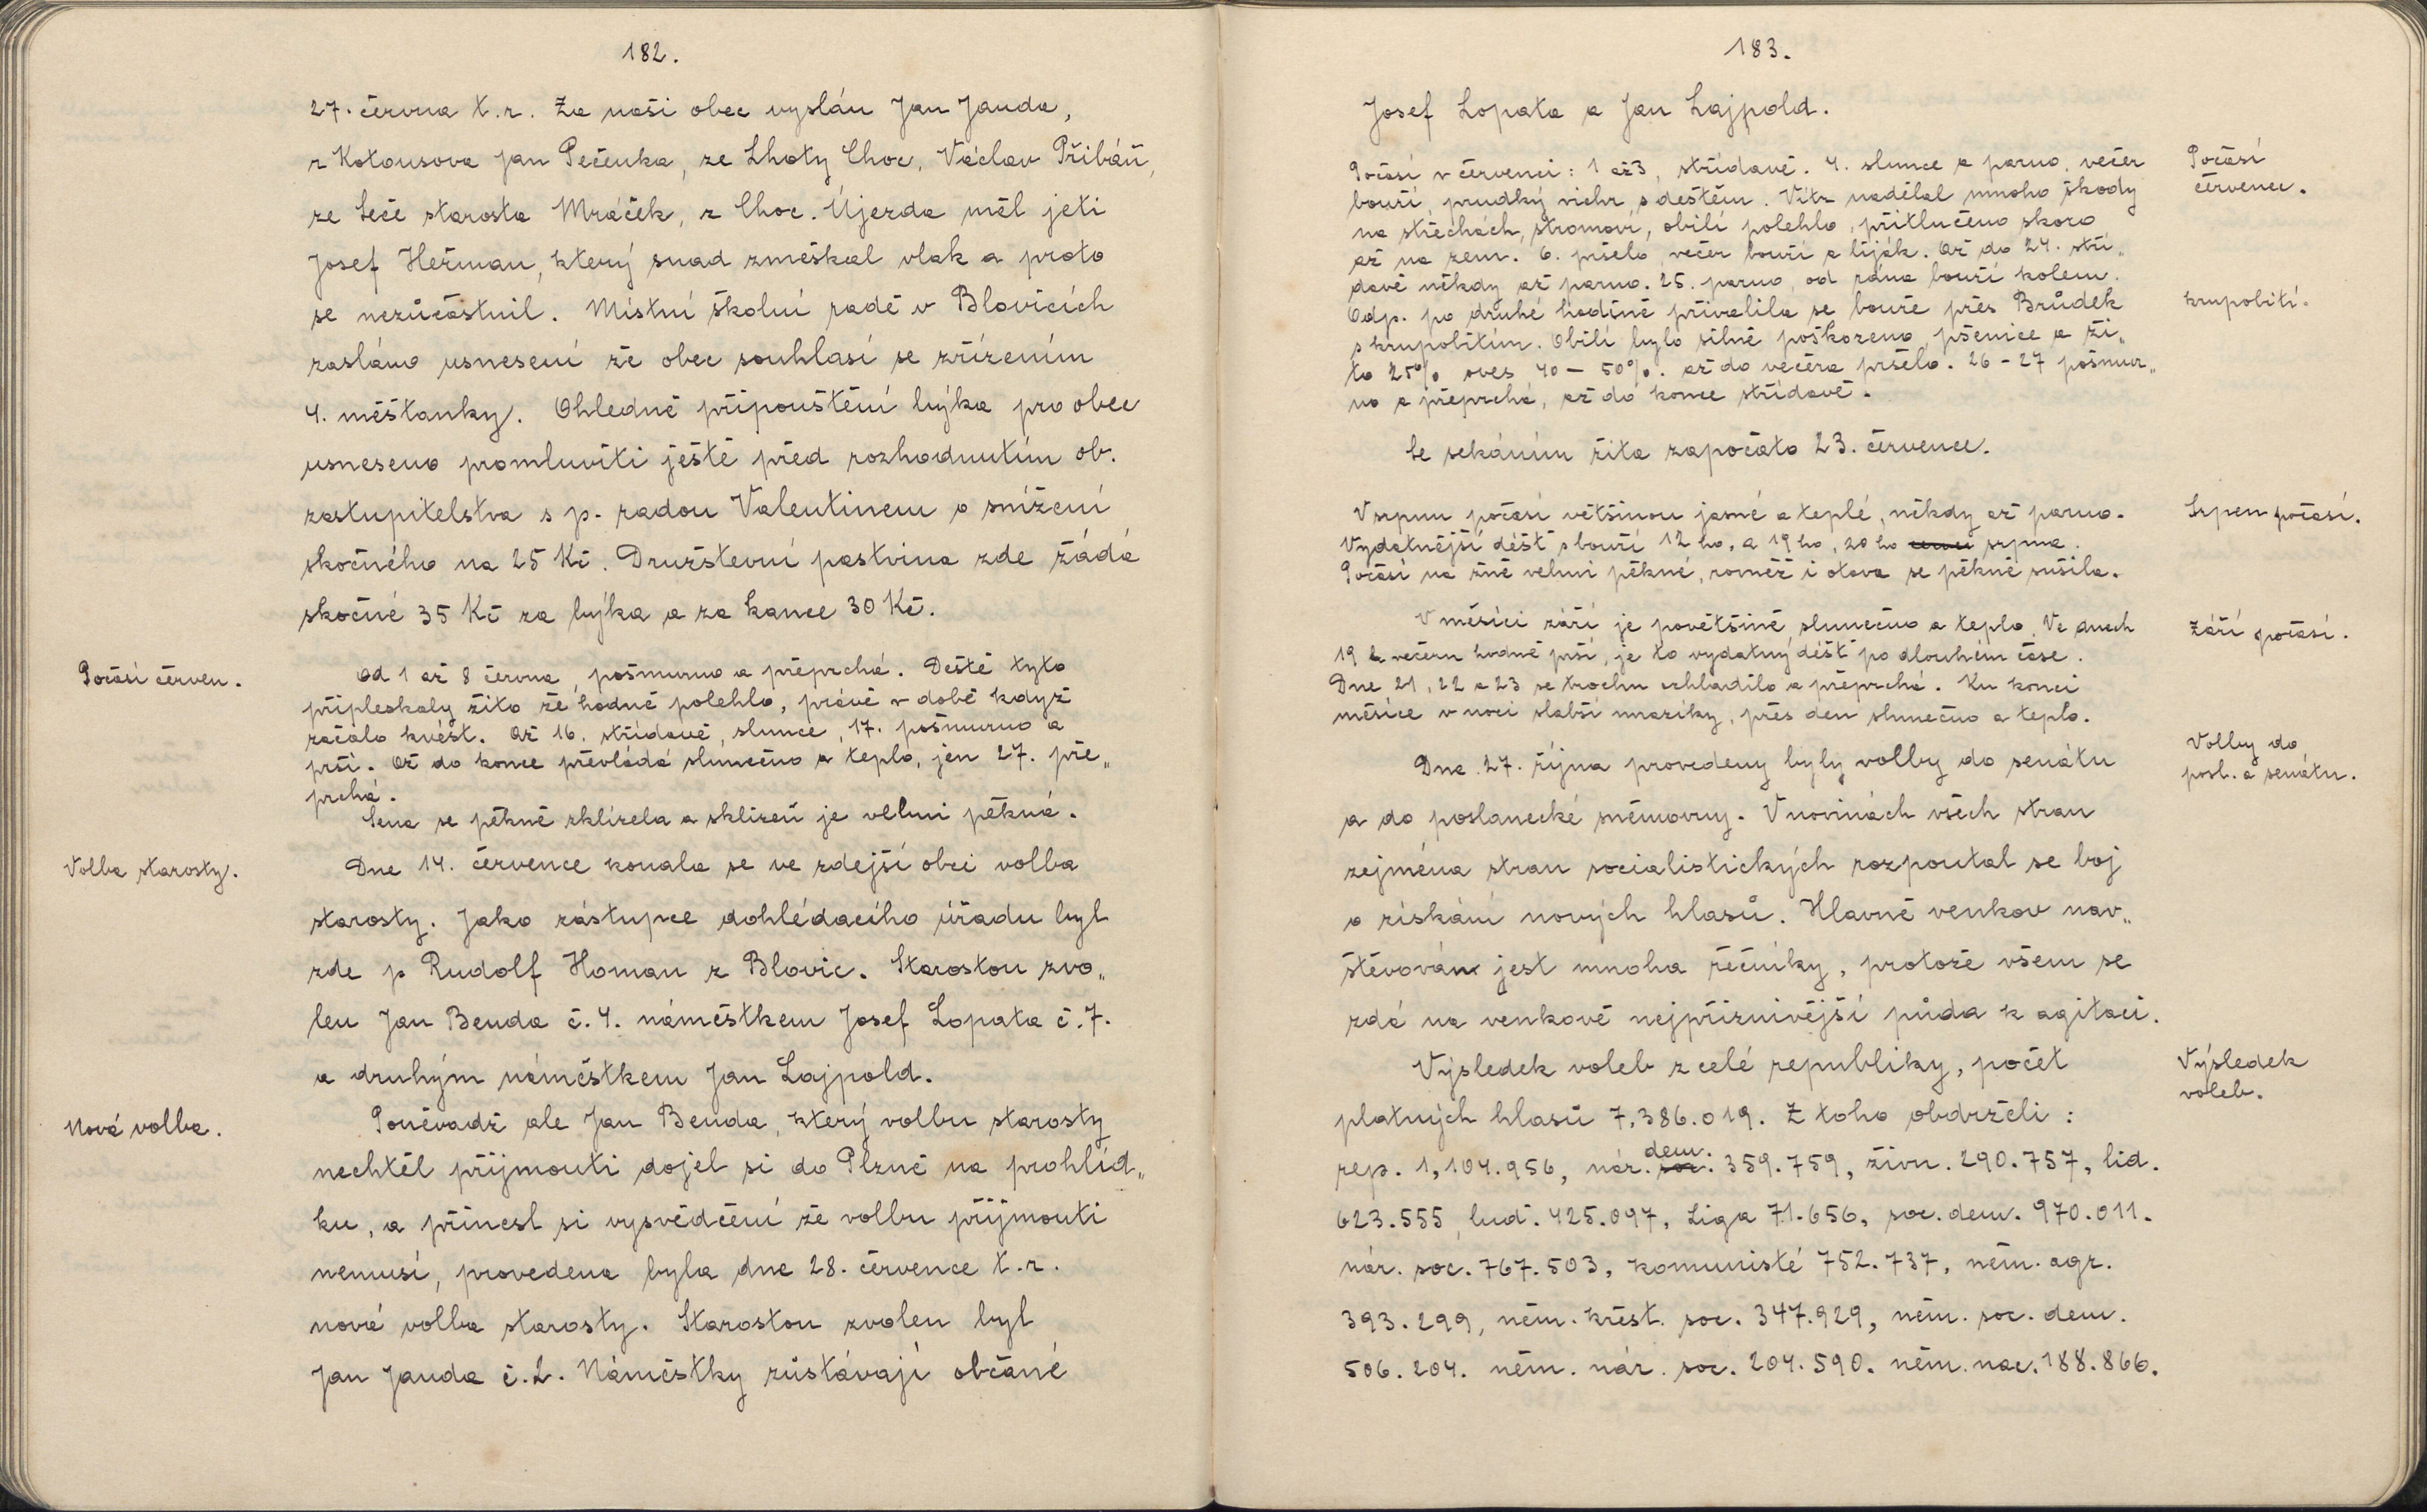 182.
27. června t.r. Za naši obec vyslán Jan Janda,
z Kotousova Jan Pečenka, ze Lhoty Choc. Václav Přibáň,
ze Seče starosta Mráček, z Choc. Újezda měl jeti
Josef Heřman, který snad zmeškal vlak a proto
se nezůčastnil. Místní školní radě v Blovicích
zasláno usnesení že obec souhlasí se zřízením
4. měšťanky. Ohledně připouštění býka pro obec
usneseno promluviti ještě před rozhodnutím ob.
zastupitelstva s p. radou Valentinem o snížení
skočného na 25 Kč. Družstevní pastvina zde žádá
skočné 35 Kč za býka a za kance 30 Kč.
Počasí červen.
Od 1 až 8 června, pošmurno a přeprchá. Deště tyto
připleskaly žito že hodně polehlo, právě v době když
začalo kvést. Až 16. střídavě, slunce, 17. pošmurno a
prší. Až do konce převládá slunečno a teplo, jen 27. pře„
prchá.
Sena se pěkně sklízela a sklizeň je velmi pěkná.
Volba starosty.
Dne 14. července konala se ve zdejší obci volba
starosty. Jako zástupce dohlédacího úřadu byl
zde p Rudolf Homan z Blovic. Starostou zvo„
len Jan Benda č.4. náměstkem Josef Lopata č.7.
a druhým náměstkem Jan Lajpold.
Nová volba.
Poněvadž ale Jan Benda, který volbu starosty
nechtěl příjmouti dojel si do Plzně na prohlíd„
ku, a přinesl si vysvědčení že volbu příjmouti
nemusí, provedena byla dne 28. července t.r.
nová volba starosty. Starostou zvolen byl
Jan Janda č.2. Náměstky zůstávají občané
183.
Josef Lopata a Jan Lajpold.
Počasí červenec.
Počasí v červenci: 1 až 3, střídavě. 4. slunce a parno, večer
bouří, prudký vichr s deštěm. Vítr nadělal mnoho škody
na střechách, stromoví, obilí polehlo, přitlučeno skoro
až na zem. 6. pršelo, večer bouří a liják. Až do 24. stří„
davě někdy až parno. 25. parno, od rána bouří kolem.
krupobití.
Odp. po druhé hodině přivalila se bouře přes Brůdek
s krupobitím. Obilí bylo silně poškozeno, pšenice a ži„
to 25% oves 40 – 50%. až do večera pršelo. 26 – 27 pošmur„
no a přeprchá, až do konce střídavě.
Se sekáním žita započato 23. července.
Srpen počasí.
V srpnu počasí většinou jasné a teplé, někdy až parno.
Vydatnější déšť s bouří 12 ho, a 19 ho, 20 ho srpna.
Počasí na žně velmi pěkné, rovněž i otava se pěkně sušila.
Září počasí.
V měsíci září je povětšině slunečno a teplo. Ve dnech
19 k večeru hodně prší, je to vydatný déšť po dlouhém čase.
Dne 21, 22 a 23 se trochu ochladilo a přeprchá. Ku konci
měsíce v noci slabší mrazíky, přes den slunečno a teplo.
Volby do
posl. a senátu.
Dne 27. října provedeny byly volby do senátu
a do poslanecké sněmovny. V novinách všech stran
zejména stran socialistických rozpoutal se boj
o získání nových hlasů. Hlavně venkov nav„
štěvován jest mnoha řečníky, protože všem se
zdá na venkově nejpříznivější půda k agitaci.
Výsledek
voleb.
Výsledek voleb z celé republiky, počet
platných hlasů 7,386.019. Z toho obdrželi:
rep. 1,104.956, nár. soc. dem. 359.759, živn. 290.757, lid.
623.555, luď. 425.097, Liga 71.656, soc. dem. 970.011.
nár. soc. 767.503, komunisté 752.737, něm. agr.
393.299, něm. křest. soc. 347.929, něm. soc. dem.
506.204. něm. nár. soc. 204.590. něm. nac. 188.866.